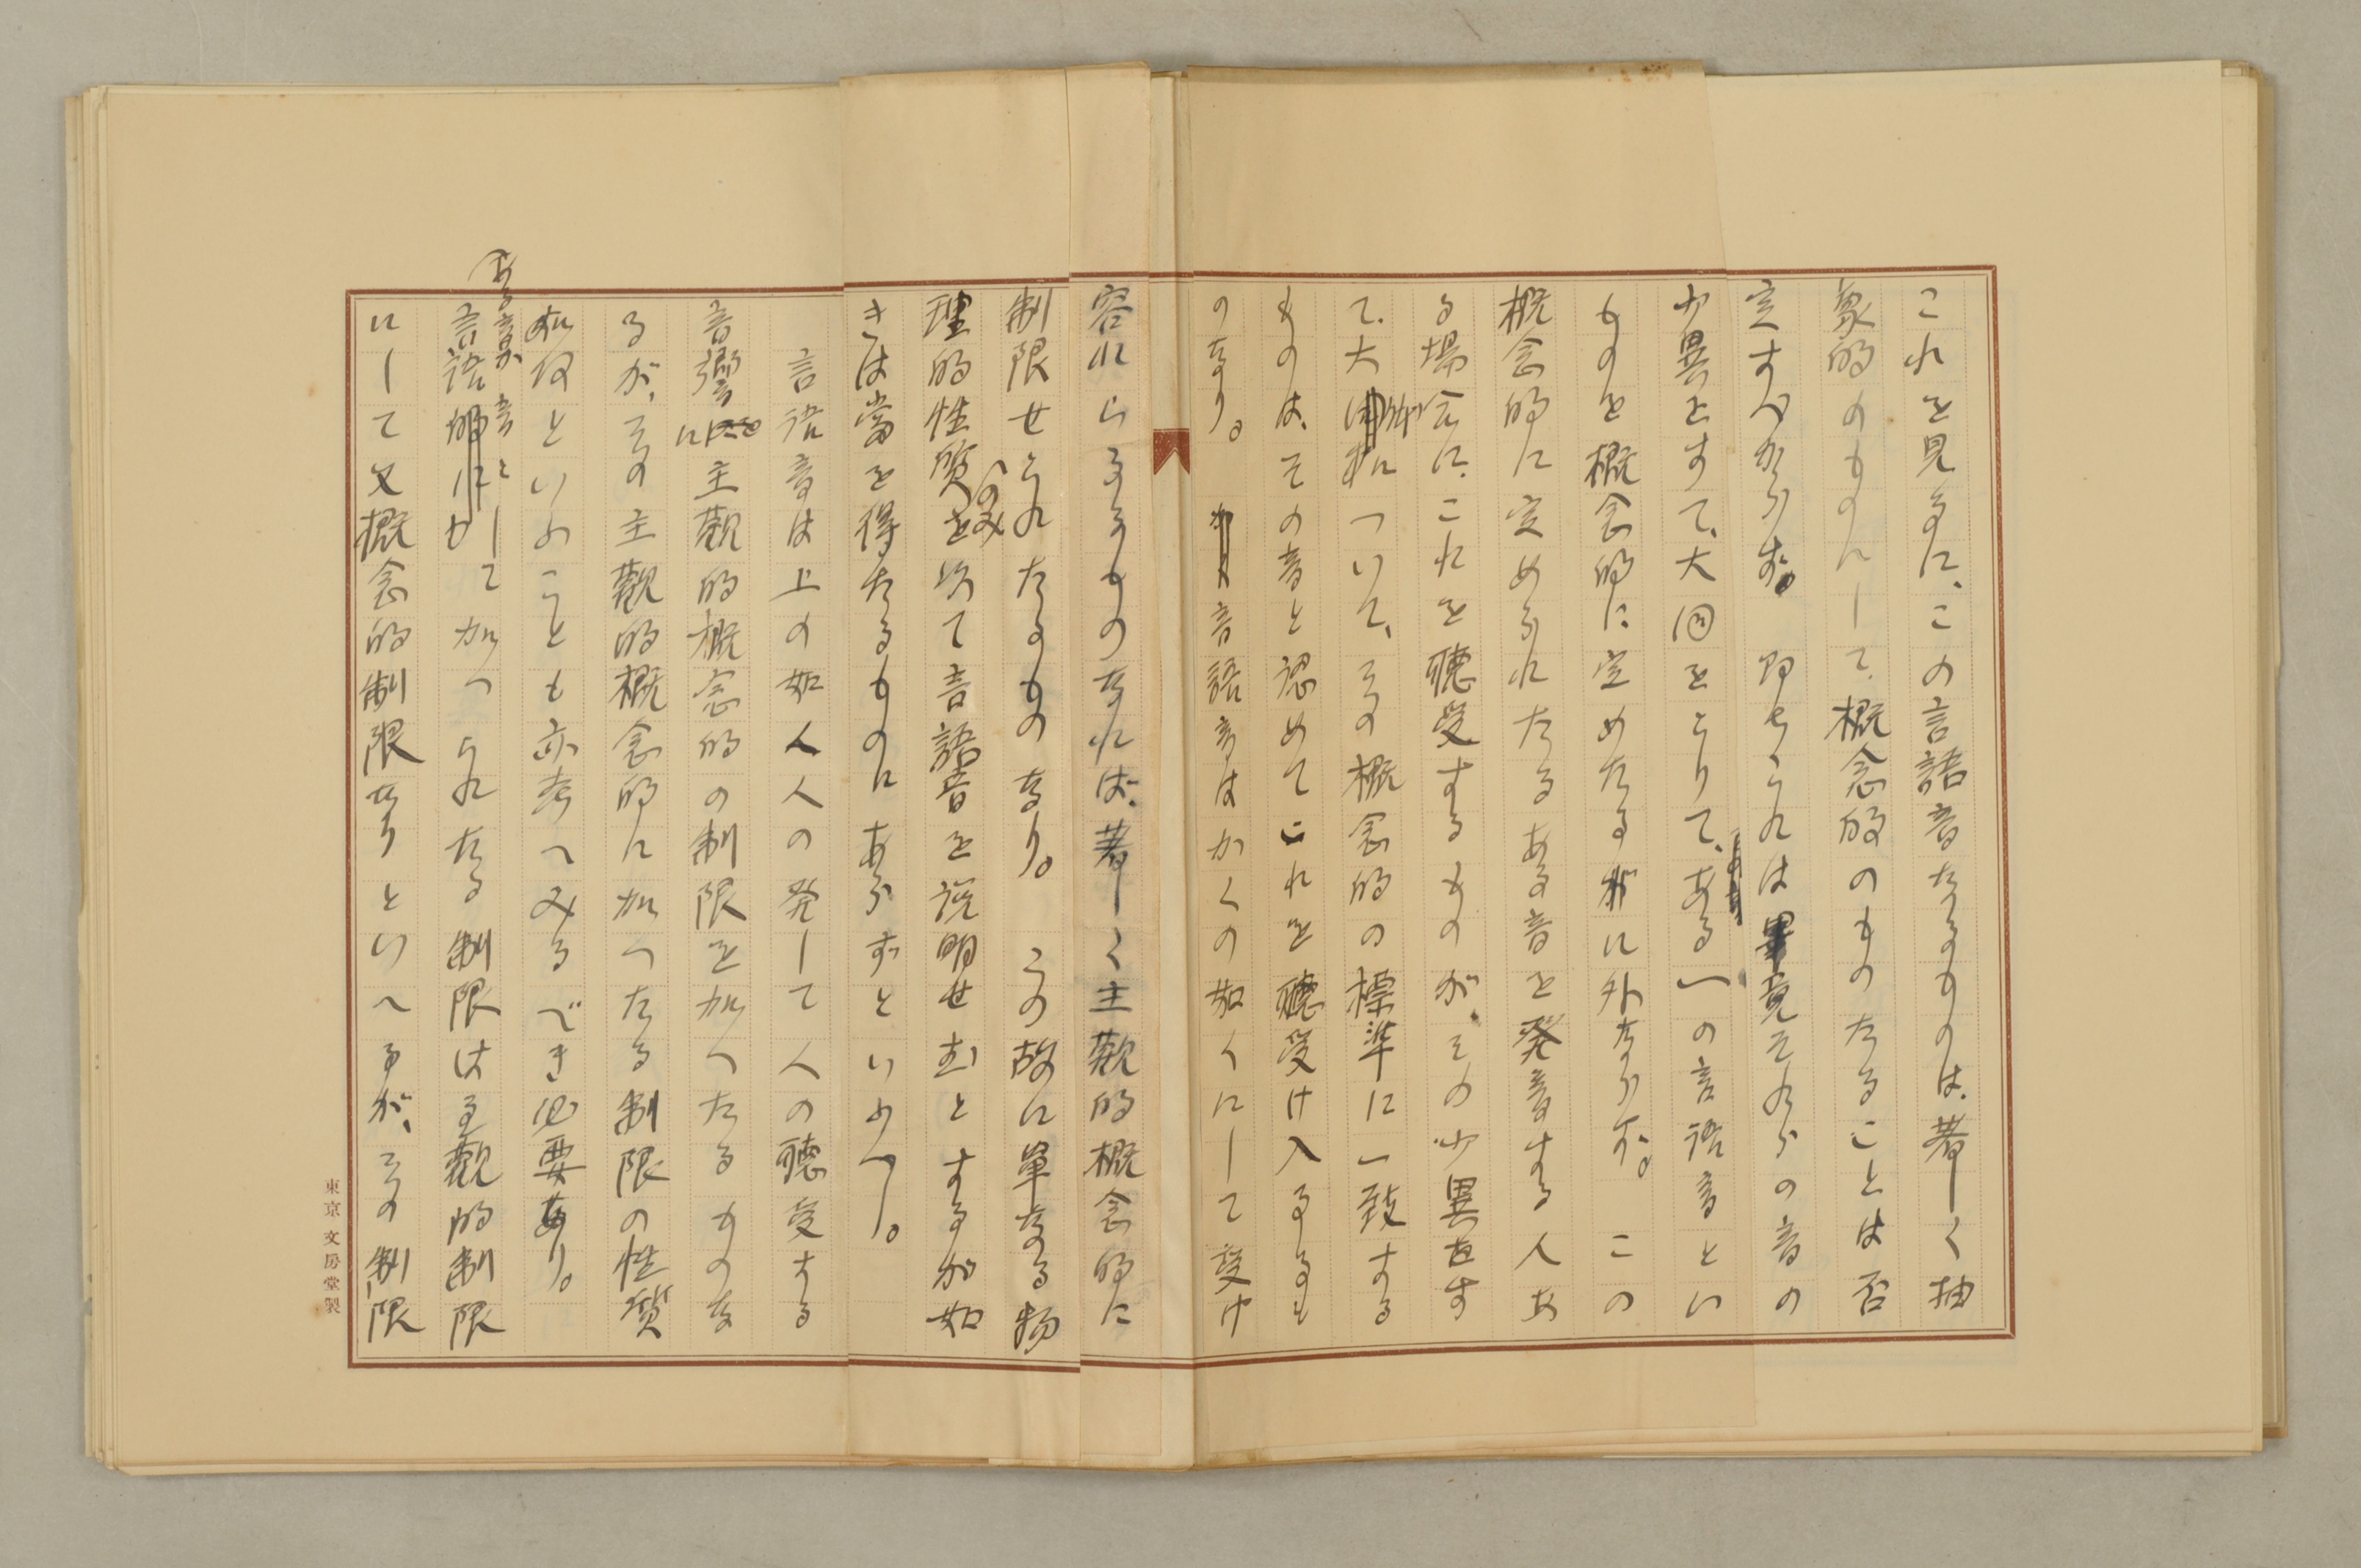 これを見るに、この言語音なるものは、著しく抽
象的のものにして、概念的のものたることは否
定すべからず。即ちこれは畢竟それらの音の
少異をすて、大同をとりて、ある一の言語音とい
ものを概念的に定めたるが外ならず。この
概念的に定められたるある音を発音する人あ
る場合に、これを聴受するものが、その少異をす
て、大体について、その概念的の標準に一致する
ものは、その音と認めてこれを聴受け入るるも
のなり。言語音はかくの如くにして受け
容れらるるものなれば、著しく主観的概念的に
制限せられたるものなり。この故に単なる物
理的性質のみを以て言語音を説明せむとするが如
きは当を得たるものにあらずといふべし。
言語音は上の如く人の発して人の聴受する
音響に主観的概念的の制限を加へたるものな
るが、その主観的概念的に加へたる制限の性質
如何といふことも亦考へみるべき必要あり。
ある音が言語音としてもつ加へられたる制限は主観的制限
にして又概念的制限なりといへるが、その制限
東京 文房堂製